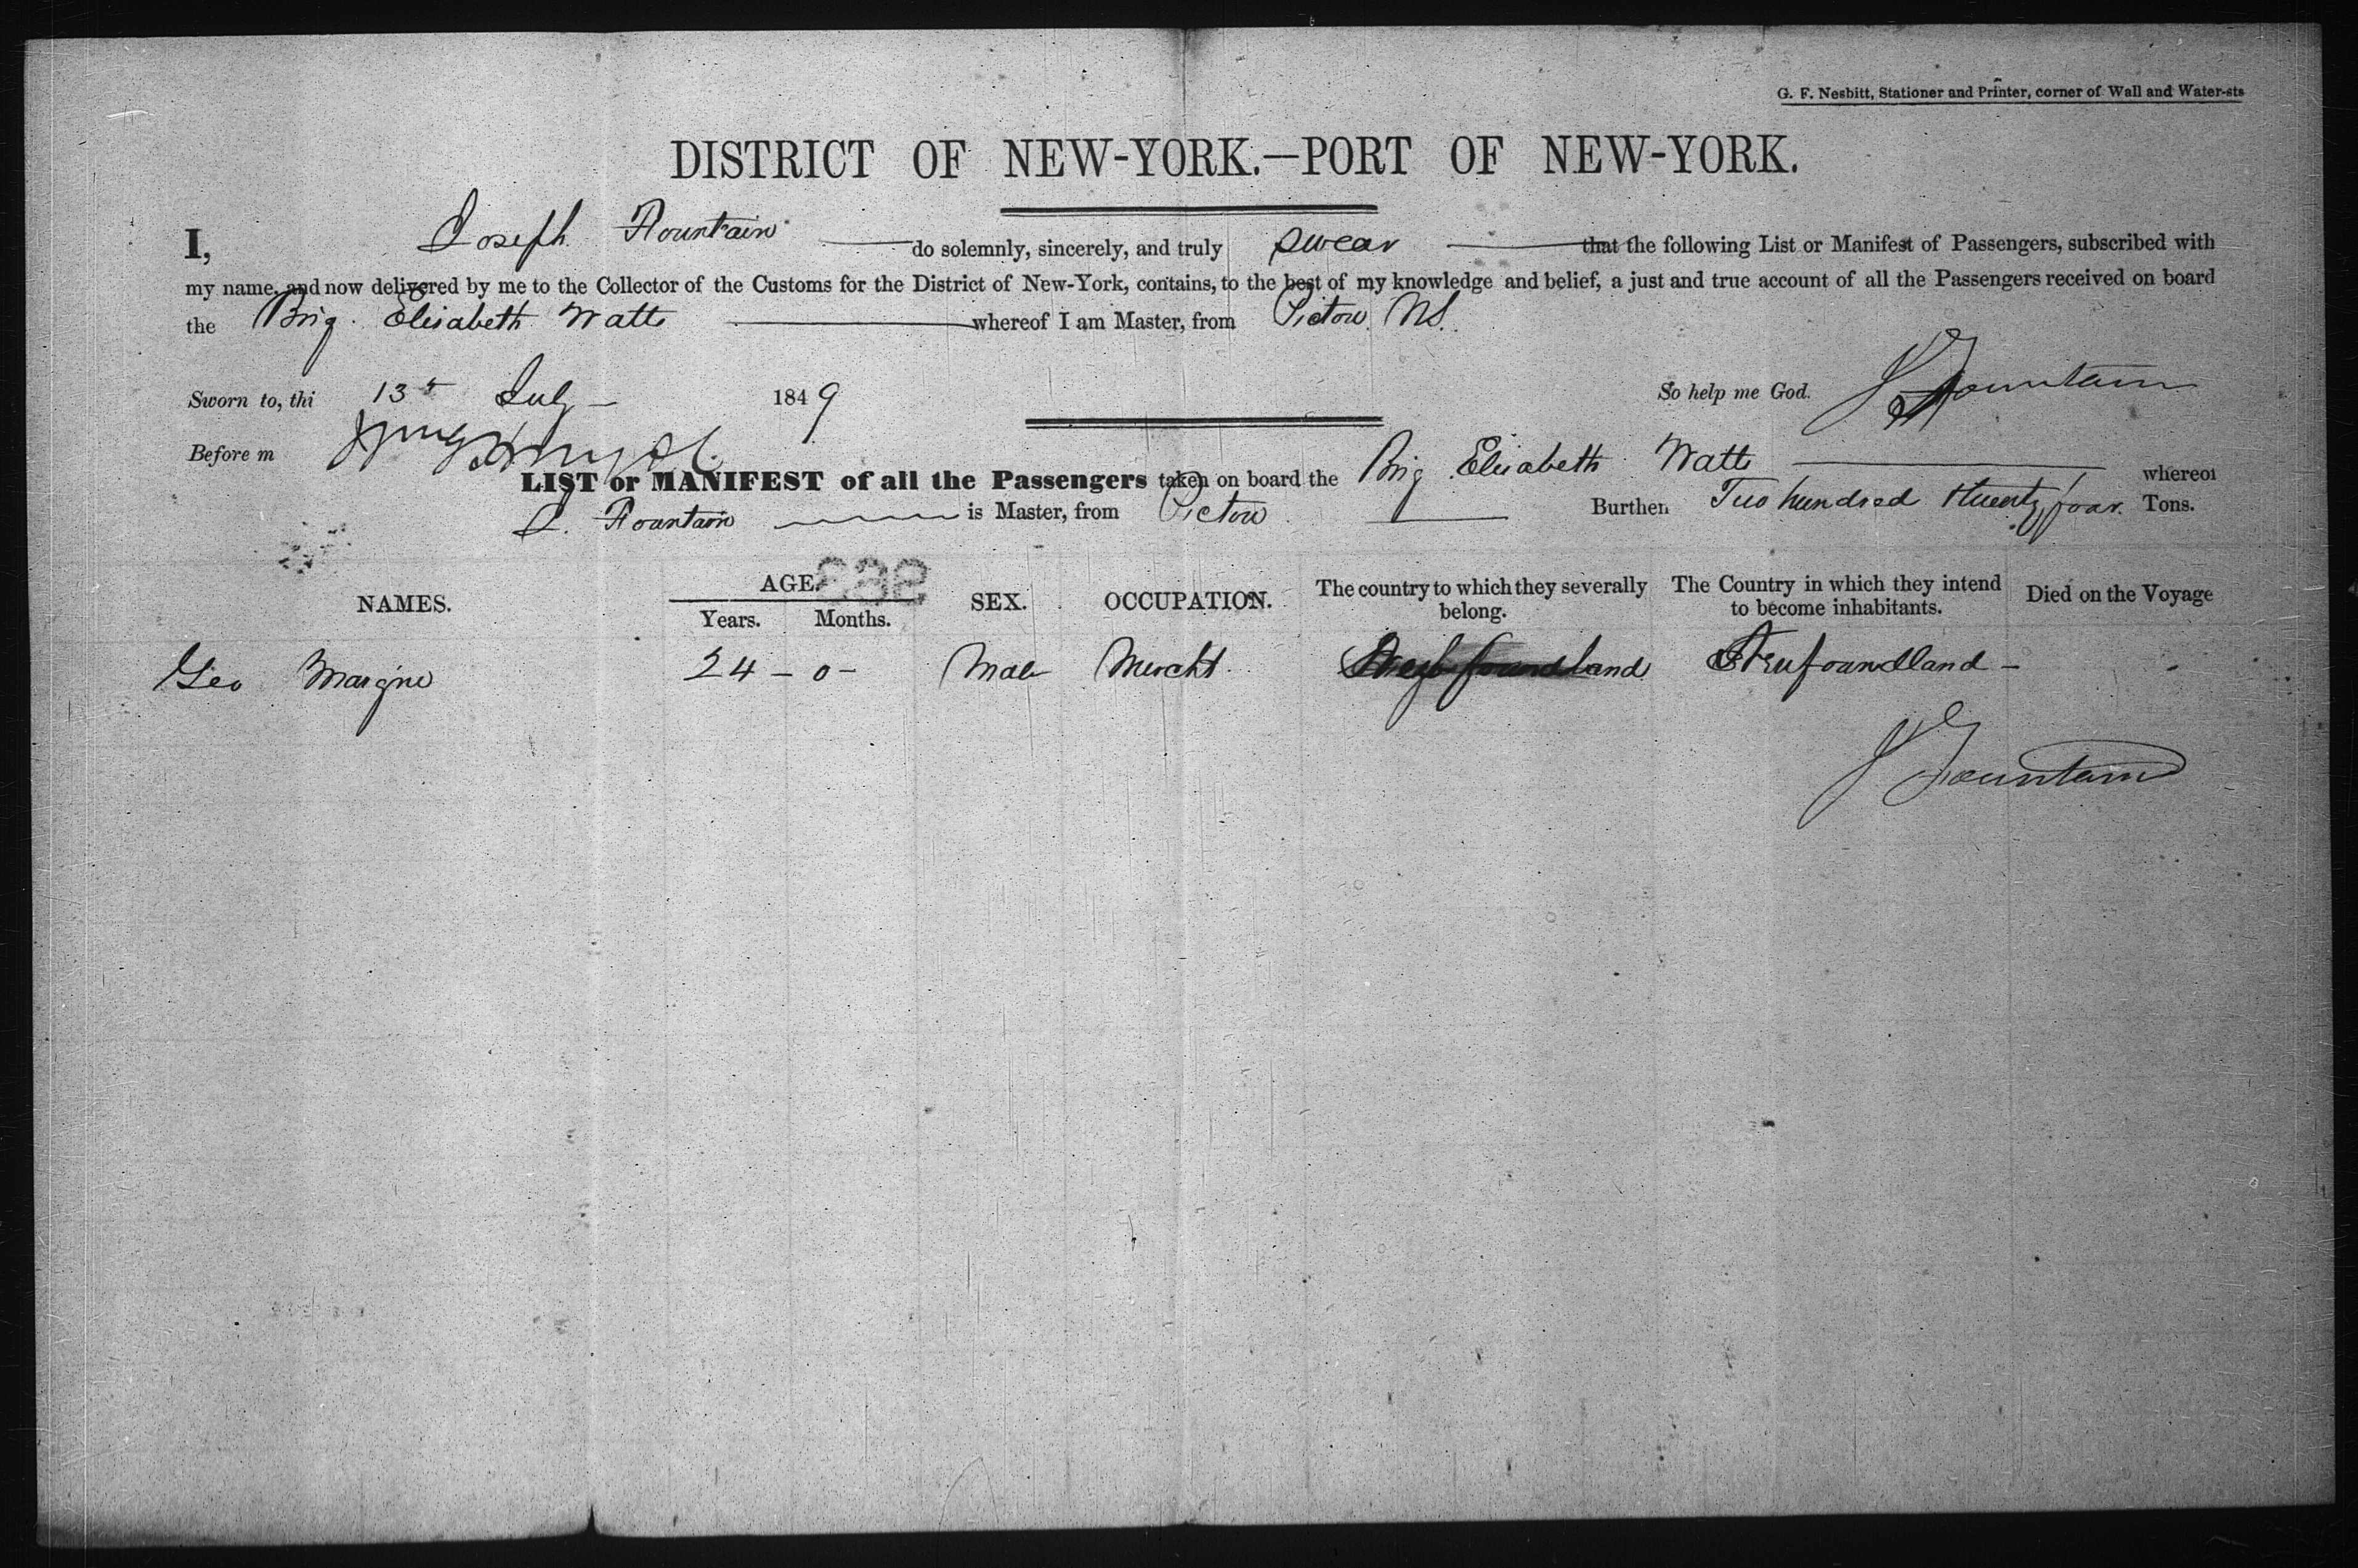 G. F. Nesbitt, Stationer and Printer, corner of Wall and Water-sts
DISTRICT OF NEW-YORK.—PORT OF NEW-YORK.
I, Joseph Fountain do solemnly, sincerely, and truly swear that the following List or Manifest of Passengers, subscribed with
my name, and now delivered by me to the Collector of the Customs for the District of New-York, contains, to the best of my knowledge and belief, a just and true account of all the Passengers received on board
the Brig. Elisabeth Watts whereof I am Master, from Pictou NS.
Sworn to, thi 13th July 1849 So help me God. J Fountain
Before m
LIST or MANIFEST of all the Passengers taken on board the Brig Elisabeth Watts whereof
J. Fountain is Master, from Pictou Burthen Two hundred & twenty four Tons.
NAMES. AGE. SEX. OCCUPATION. The country to which they severally belong. The Country in which they intend to become inhabitants. Died on the Voyage
Years. Months.
Geo 24 - 0 - Male Mercht. Newfoundland -
J Fountain